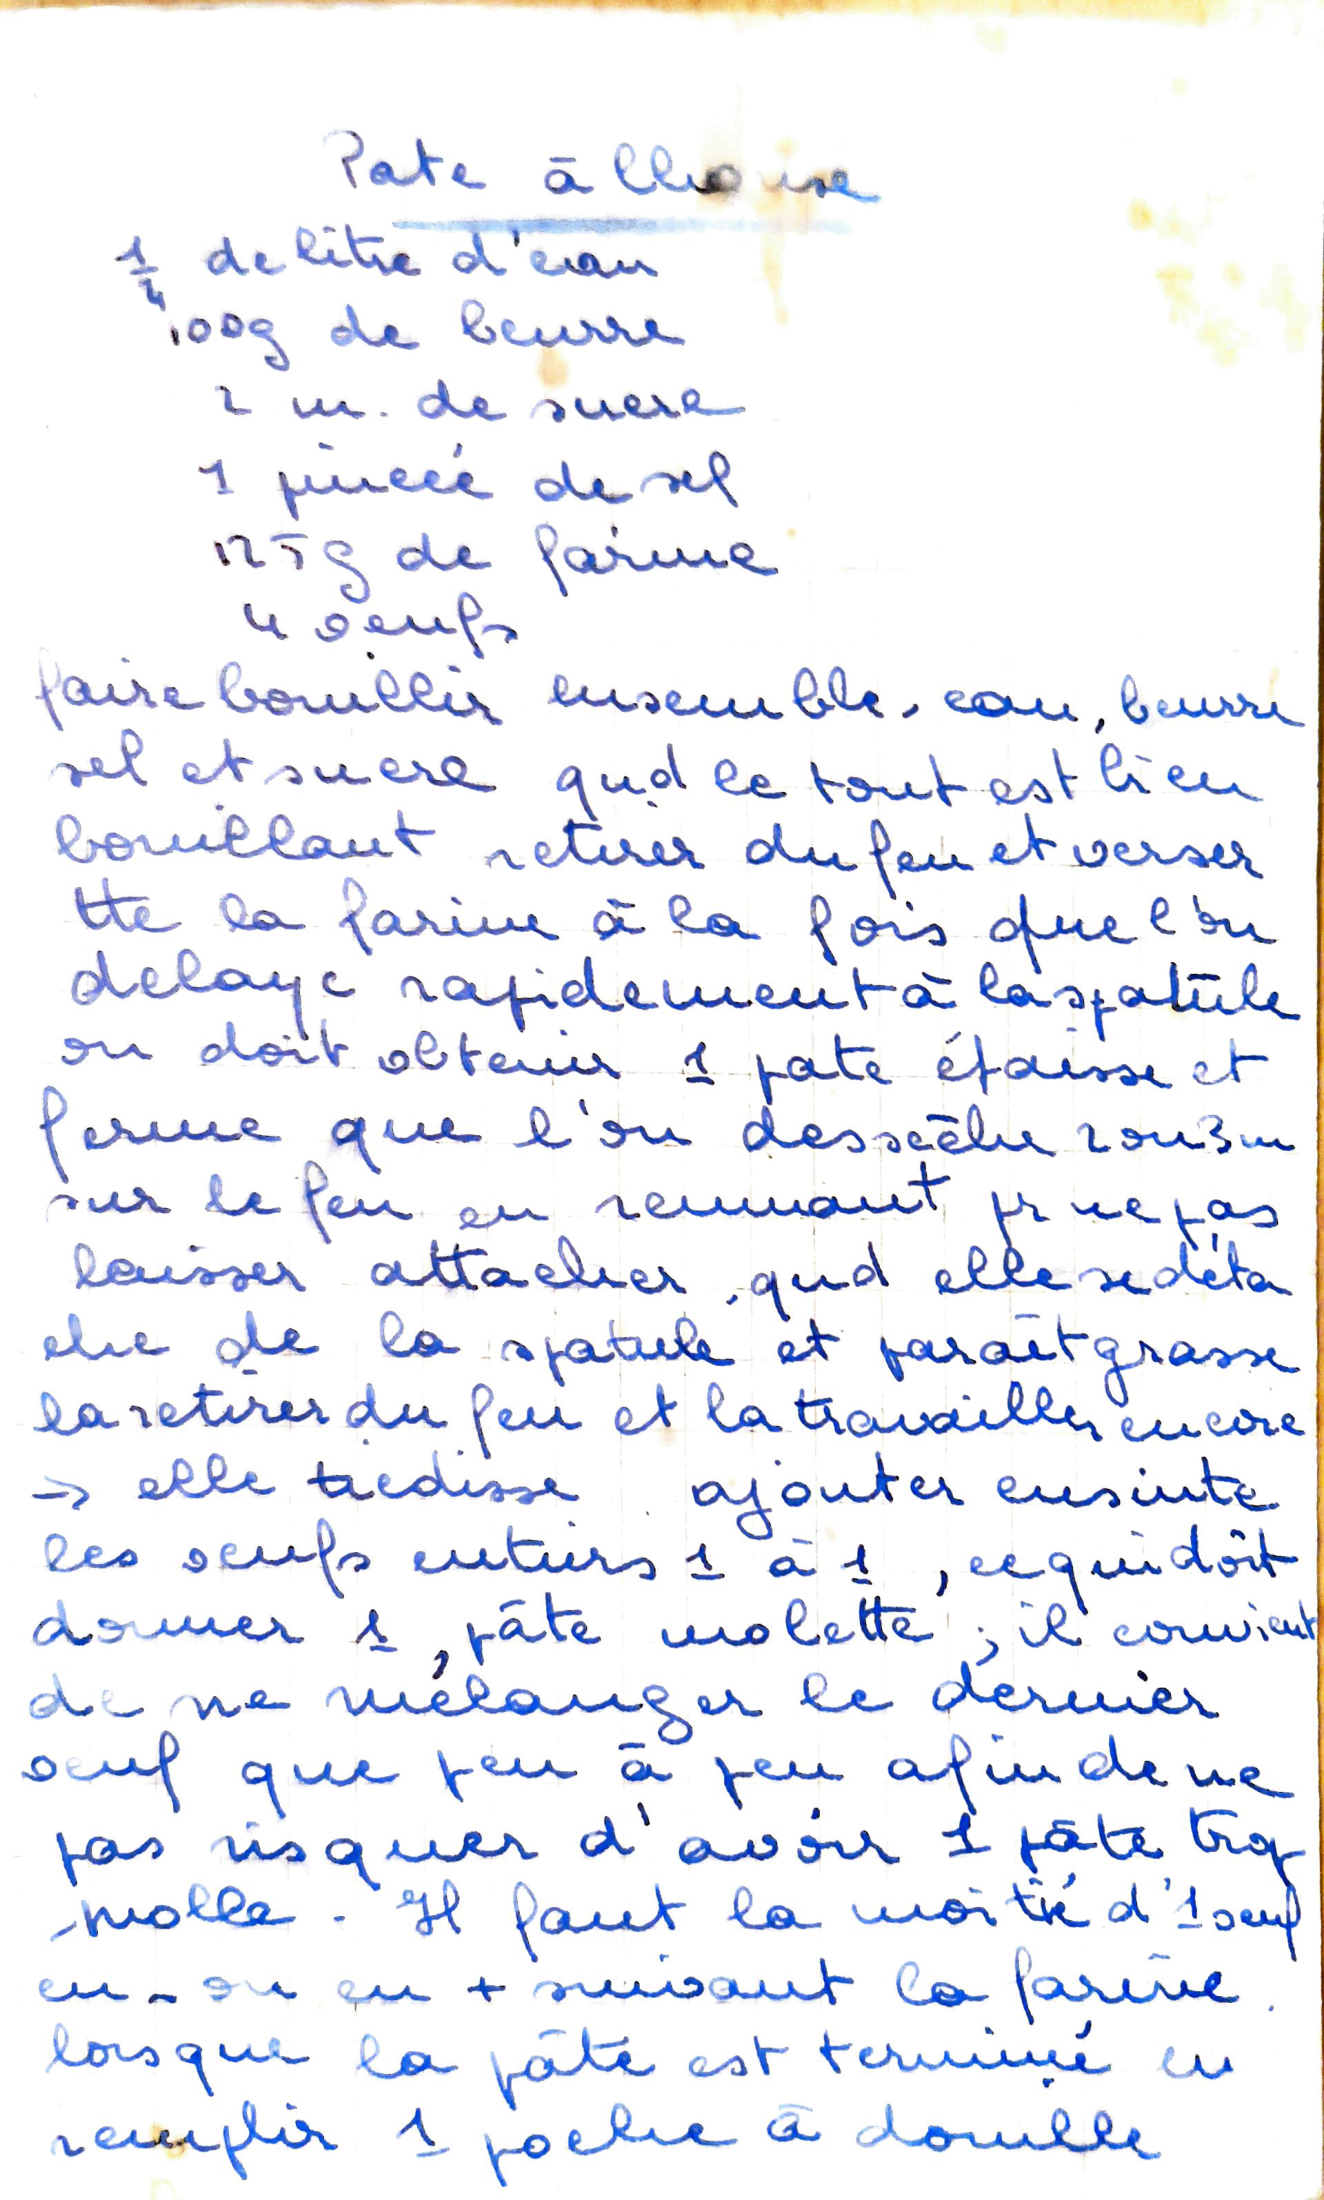 Pate à choux
1/4 de litre d'eau
100g de beurre
2 m. de sucre
1 pincée de sel
125g de farine
4 oeufs
faire bouillir ensemble, eau, beurre
sel et sucre qud le tout est bien
bouillant retirer du feu et verser
tte la farine à la fois que l'on
delaye rapidement à la spatule
on doit obtenir 1 pate épaisse et
ferme que l'on dessèche 2 ou 3 m
sur le feu en remuant pr ne pas
laisser attacher, qud elle se déta
che de la spatule et paraît grasse
la retirer du feu et la travailler encore
→ elle tiedisse ajouter ensuite
les oeufs entiers 1 à 1, ce qui doit
donner 1 pâte molette ; il convient
de ne mélanger le dernier
oeuf que peu à peu afin de ne
pas risquer d'avoir 1 pâte trop
molle - Il faut la moitié d'1 oeuf
en - ou en + suivant la farine.
lorsque la pâte est terminé en
remplir 1 poche à douille